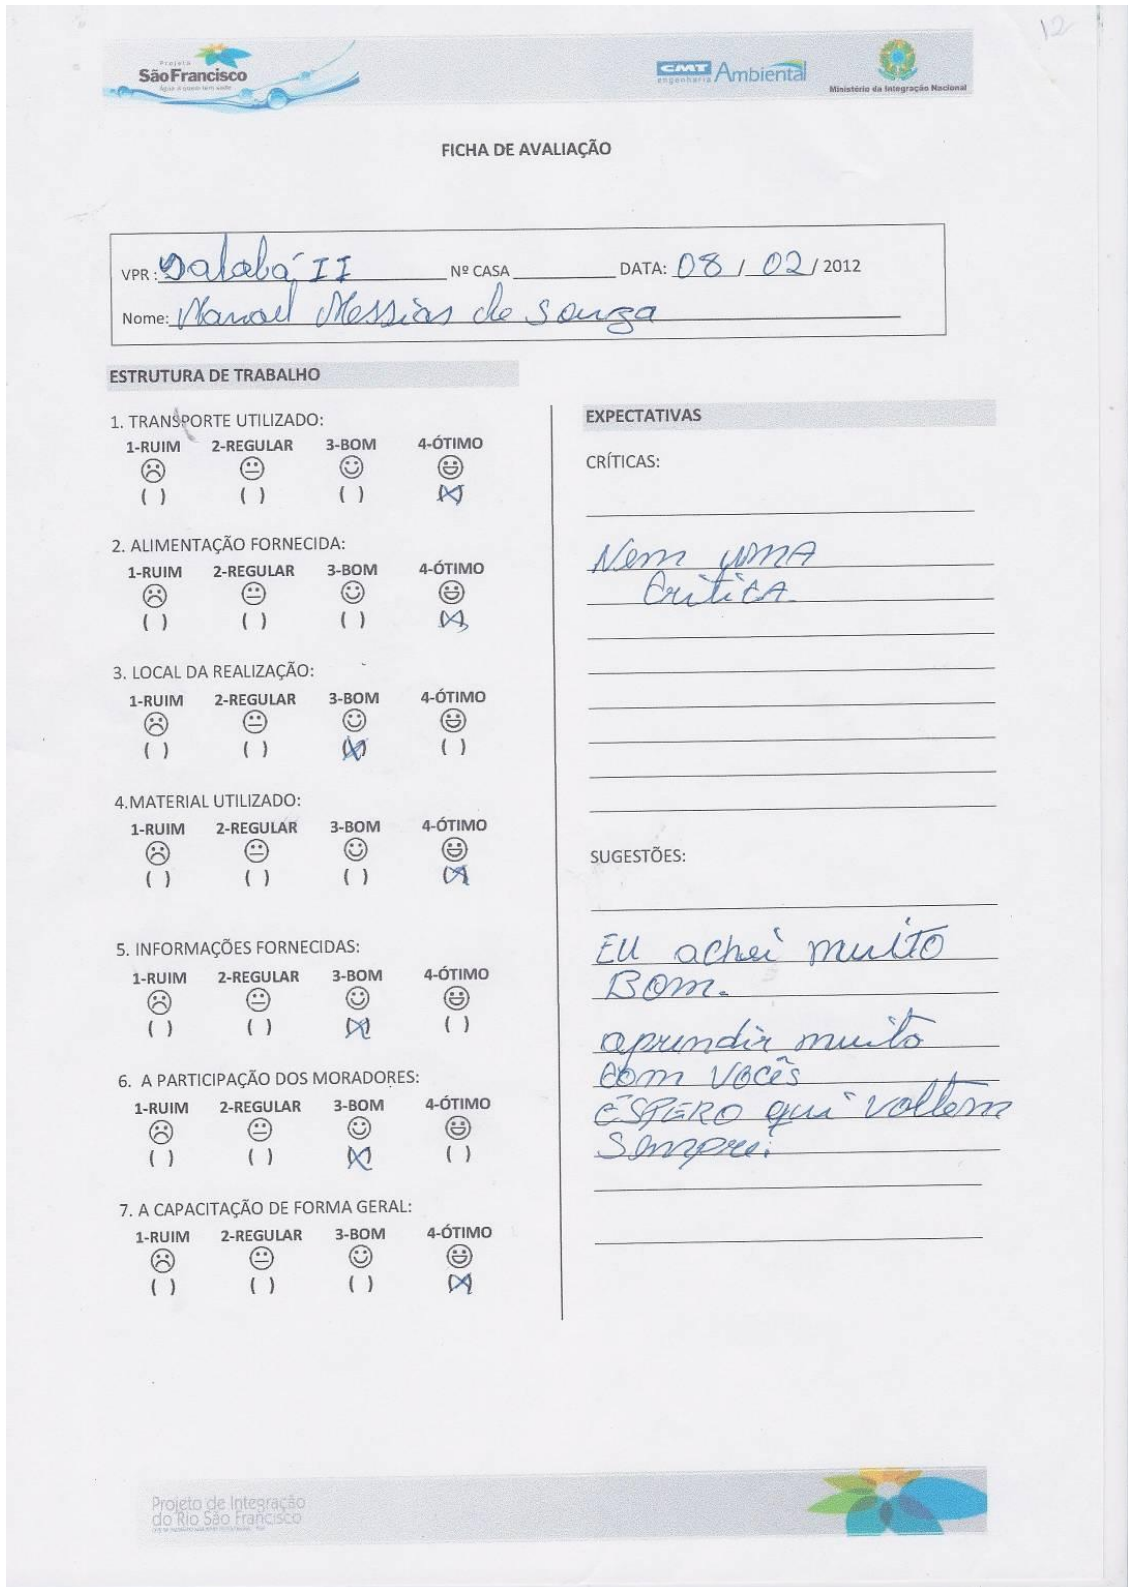 12
Projeto
São Francisco
Água a quem tem sede
CMT
engenharia
Ambiental
Ministério da Integração Nacional
FICHA DE AVALIAÇÃO
VPR: Salabá II Nº CASA DATA: 08 / 02 / 2012
Nome: Manoel Messias de Souza
ESTRUTURA DE TRABALHO
1. TRANSPORTE UTILIZADO:
1-RUIM 2-REGULAR 3-BOM 4-ÓTIMO
( ) ( ) ( ) (X)
2. ALIMENTAÇÃO FORNECIDA:
1-RUIM 2-REGULAR 3-BOM 4-ÓTIMO
( ) ( ) ( ) (X)
3. LOCAL DA REALIZAÇÃO:
1-RUIM 2-REGULAR 3-BOM 4-ÓTIMO
( ) ( ) (X) ( )
4.MATERIAL UTILIZADO:
1-RUIM 2-REGULAR 3-BOM 4-ÓTIMO
( ) ( ) ( ) (X)
5. INFORMAÇÕES FORNECIDAS:
1-RUIM 2-REGULAR 3-BOM 4-ÓTIMO
( ) ( ) (X) ( )
6. A PARTICIPAÇÃO DOS MORADORES:
1-RUIM 2-REGULAR 3-BOM 4-ÓTIMO
( ) ( ) (X) ( )
7. A CAPACITAÇÃO DE FORMA GERAL:
1-RUIM 2-REGULAR 3-BOM 4-ÓTIMO
( ) ( ) ( ) (X)
EXPECTATIVAS
CRÍTICAS:
Nem uma
Critica
SUGESTÕES:
EU achei muito
BOM.
aprendir muito
com vocês
ESPERO qui voltem
Sempre.
Projeto de Integração
do Rio São Francisco